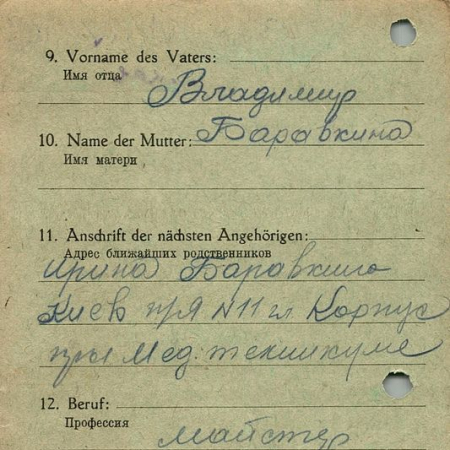 9. Vorname des Vaters:
Имя отца
Владимир
10. Name der Mutter: Баравкина
Имя матери
11. Anschrift der nächsten Angehörigen:
Адрес ближайших родственников
Ирина Баравкино
Киев № 11 гл. Корпус
Мед. текникуме
12. Beruf:
Профессия
майстер